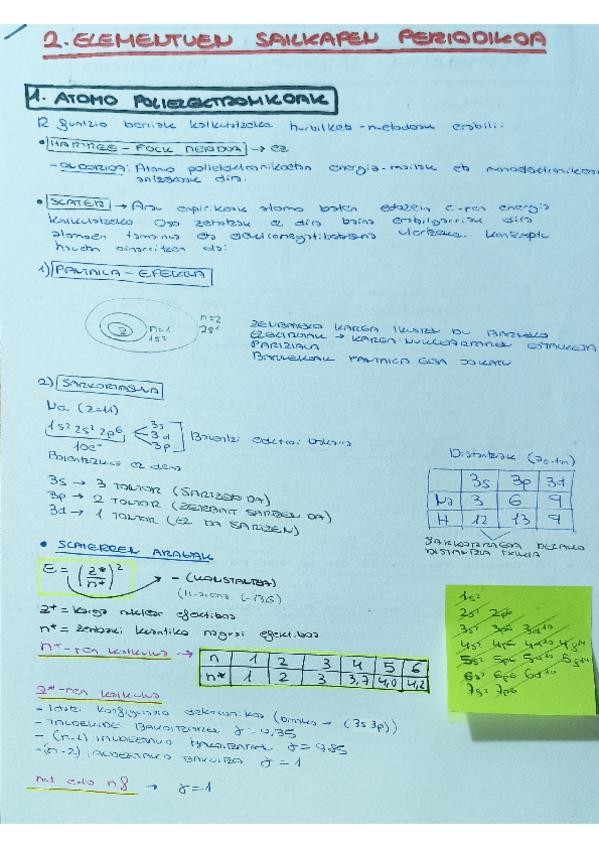 2. ELEMENTUEN SAILKAPEN PERIODIKOA
1. ATOMO POLIELEKTRONIKOAK
funtzio berriak kalkulatzeko hurbilketa-metodoak erabili:
• HARTREE - FOCK → ez
- Atomo polielektronikoetan energia-mailak eta monoelektronikoen
dira.
• SLATER → Arau enpirikoak atomo baten edozein e-ren energia
kalkulatzeko. Oso zehatzak ez dira baina erabilgarriak dira
atomoen tamaina eta elektronegatibotasuna ulertzeko. Kontzeptu
hauetan oinarritzen da:
1) PANTAILA - EFEKTUA
n=1
1s²
n=2
2s²
ZENBATEKO KARGA IKUSTEN DU
→ KARGA NUKLEARRAREN ESTALKETA
PARTZIALA
BARNEKOAK PANTAILA GISA JOKATU
2) SARKORTASUNA
Na (z=11)
1s² 2s² 2p⁶
10e⁻
3s
3d
3p
Balentzi elektroi bakarra
Balentziakoa ez dena
3s → 3 TONTOR (SARTZEN DA)
3p → 2 TONTOR (ZERBAIT SARTZEN DA)
3d → 1 TONTOR (EZ DA SARTZEN)
Distantziak
3s 3p 3d
Na 3 6 9
H 12 13 9
SARKORRAGOA DENAKO
DISTANTZIA TXIKIA
• SLATERREN ARAUAK
E = (z*/n*)² - (KONSTANTEA)
(-13,6)
z* = karga nuklear efektiboa
n* = zenbaki kuantiko nagusi efektiboa
n*-ren kalkulua →
n 1 2 3 4 5 6
n* 1 2 3 3,7 4,0 4,2
z*-ren kalkulua
- Idatzi konfigurazio elektronikoa (3s 3p)
- TALDEKIDE BAKOITZAREN γ = 0,35
- (n-1) TALDEETAKO BAKOITZAREN γ = 0,85
- (n-2) TALDEETAKO BAKOITZA γ = 1
nd edo nf → γ = 1
1s²
2s² 2p⁶
3s² 3p⁶ 3d¹⁰
4s² 4p⁶ 4d¹⁰ 4f¹⁴
5s² 5p⁶ 5d¹⁰ 5f¹⁴
6s² 6p⁶ 6d¹⁰
7s² 7p⁶